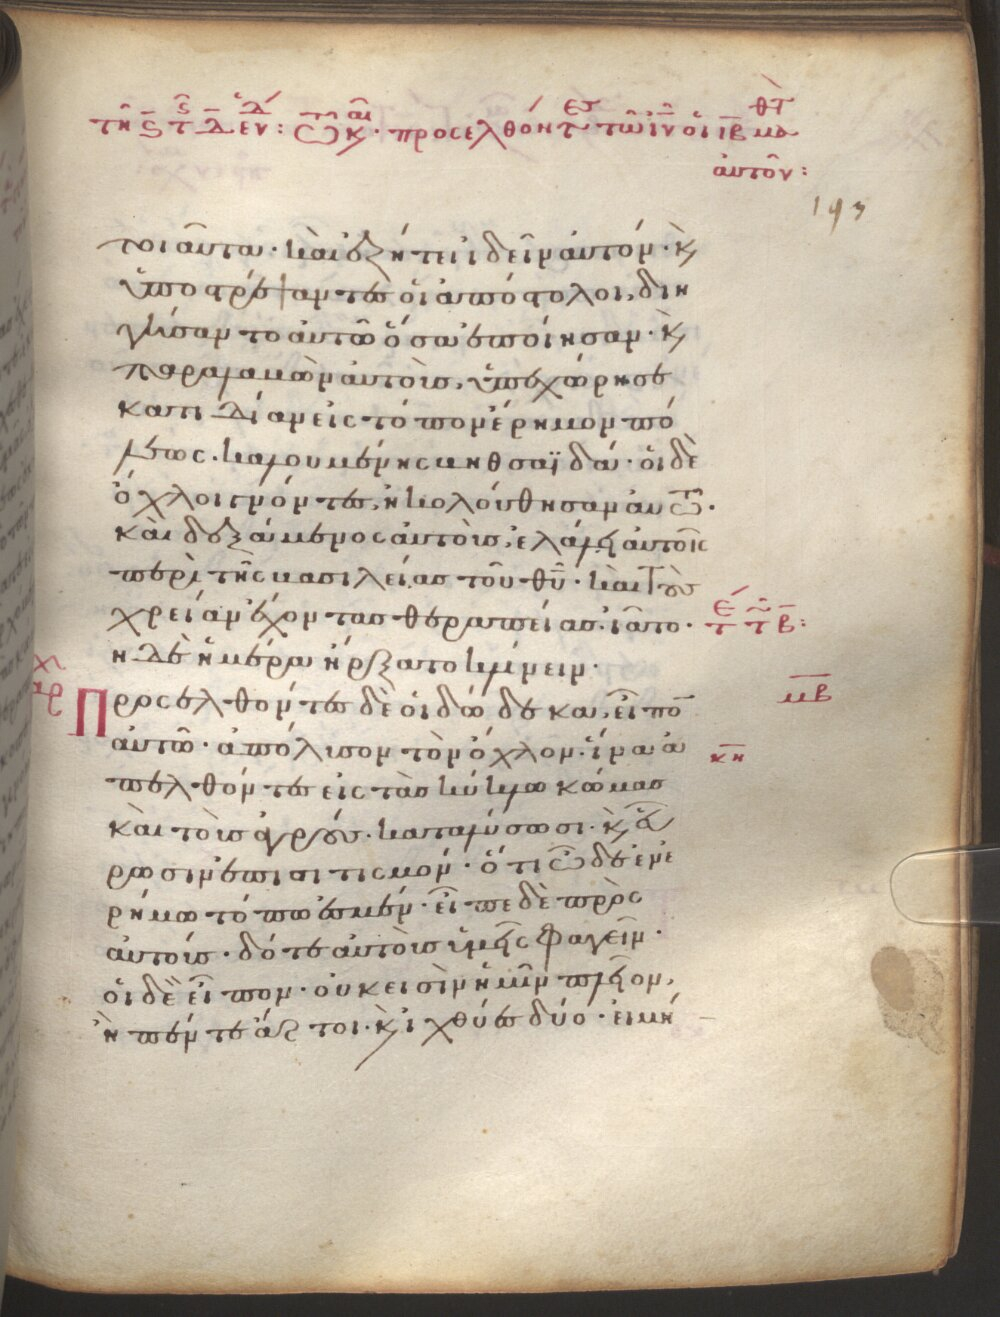 τῆς ϛ τ δ εν: τῶ και προσελθόντες τῶ ιυ οἱ ιβ μαθτ
αυτοῦ:
193
τοιαῦτα· καὶ ἐζήτει ἰδεῖν αὐτόν· κ
ὑποστρέψαντες οἱ ἀπόστολοι, διη
γήσαντο αὐτῶ ὅσα ἐποίησαν· κ
παραλαβὼν αὐτοὺς, ὑπεχώρησε
κατιδίαν εἰς τόπον ἔρημον πό
λεως καλουμένης βηθσαϊδά· οἱ δὲ
ὄχλοι γνόντες, ἠκολούθησαν αὐτῶ·
καὶ δεξάμενος αὐτοὺς, ἐλάλει αὐτοῖς
περὶ τῆς βασιλείας τοῦ θυ· καὶ τοὺς
χρείαν ἔχοντας θεραπείας ἰᾶτο·
ἡ δὲ ἡμέρα ἤρξατο κλίνειν·
αρχ
Προσελθόντες δὲ οἱ δώδεκα, εἶπον
μβ
αὐτῶ· ἀπόλυσον τὸν ὄχλον· ἵνα ἀ
κη
πελθόντες εἰς τὰς κύκλω κώμας
καὶ τοὺς ἀγρούς· καταλύσωσι· κ εὕ
ρωσιν ἐπισιτισμόν· ὅτι ὧδε ἐν ἐ
ρήμω τόπω ἐσμέν· εἶπε δὲ πρὸς
αὐτούς· δότε αὐτοῖς ὑμεῖς φαγεῖν·
οἱ δὲ εἶπον· οὐκ εἰσὶν ἡμῖν πλεῖον,
ἢ πέντε ἄρτοι· κ ἰχθύες δύο· εἰ μή